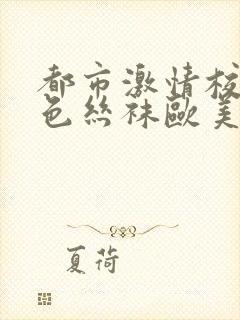 都市激情校
色丝袜欧美
夏荷